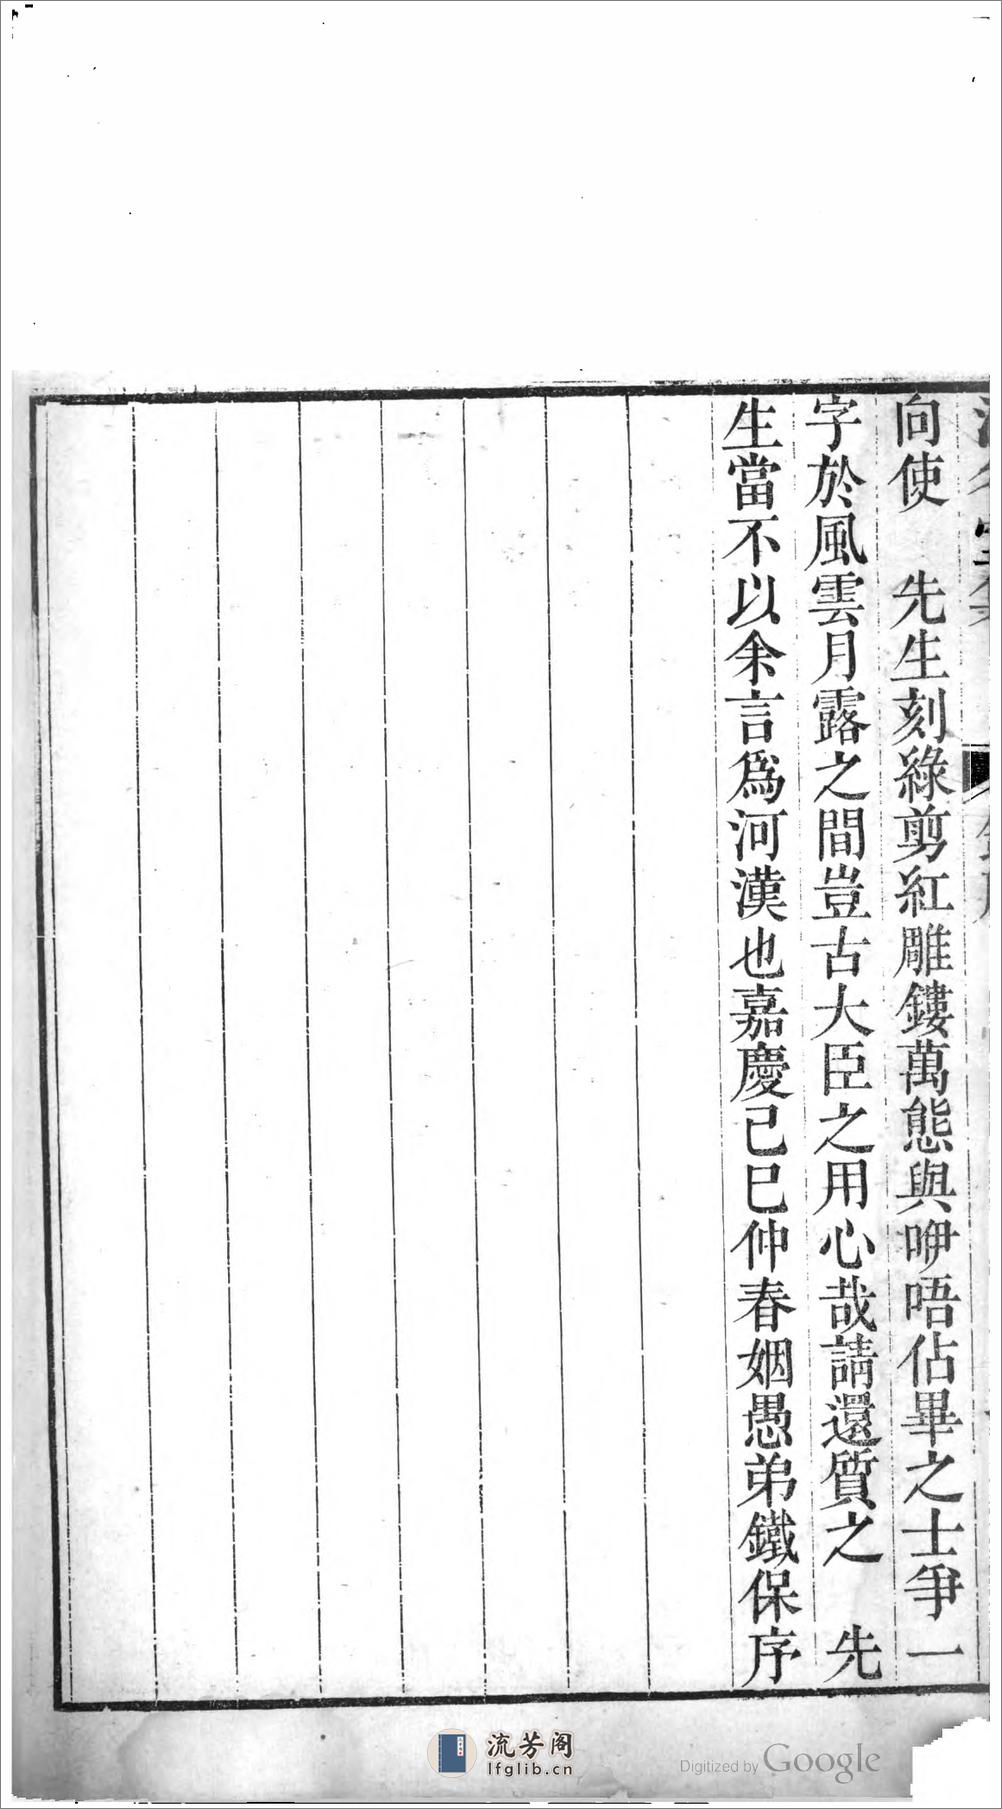 向使　先生刻綠剪紅雕鏤萬態與咿唔佔畢之士爭一
字於風雲月露之間豈古大臣之用心哉請還質之　先
生當不以余言爲河漢也嘉慶己巳仲春姻愚弟鐵保序
流芳阁
lfglib.cn
Digitized by Google